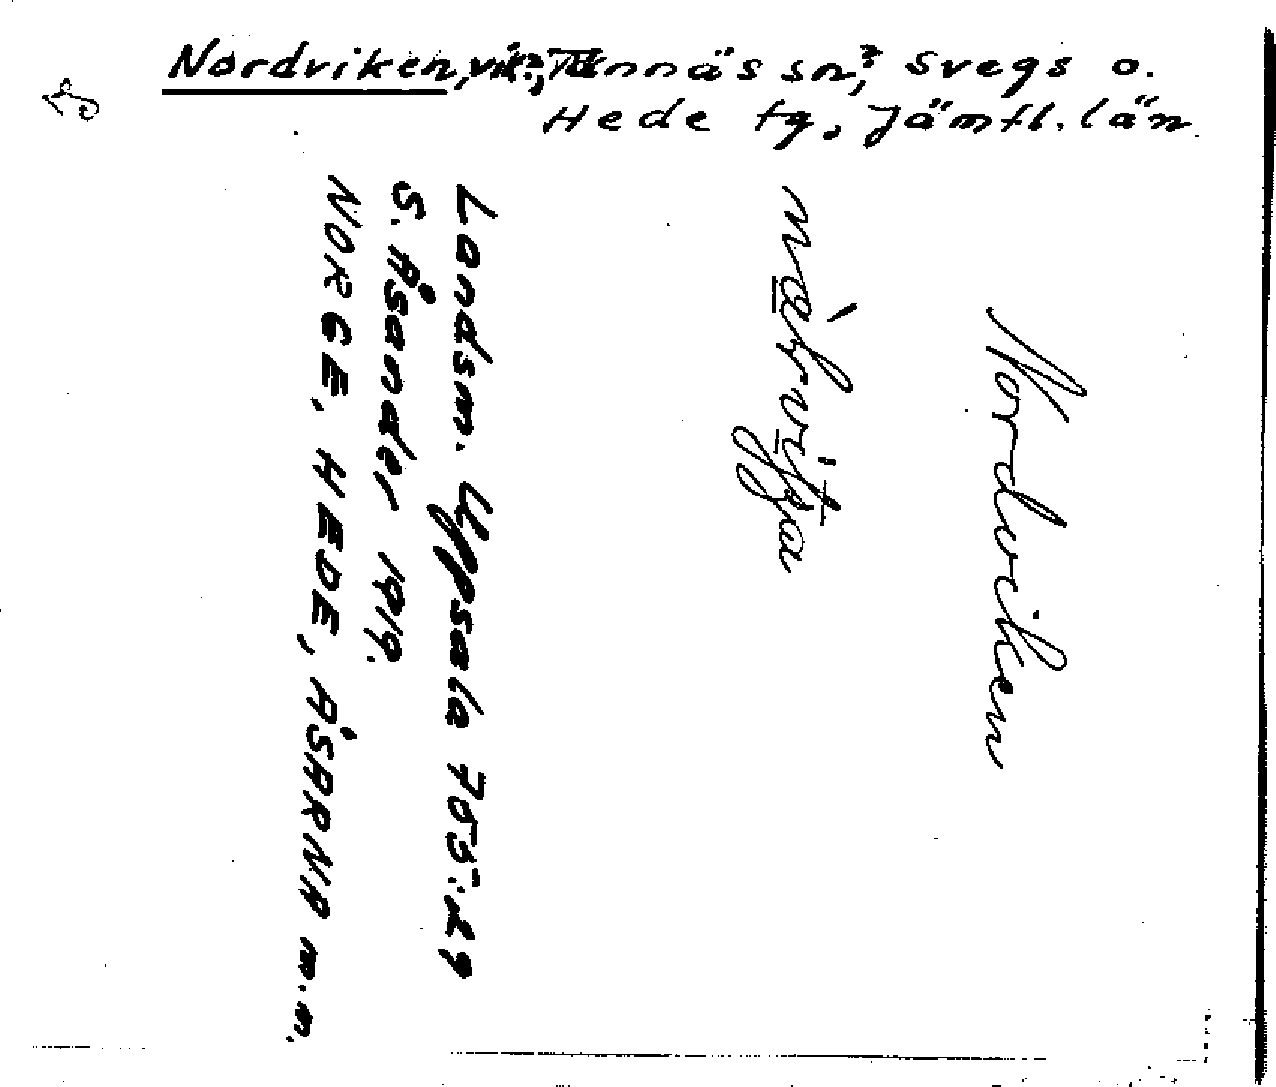 Nordviken, vik?, Tännäs sn?, Svegs o.
Hede tg, Jämtl. län
Nordviken
Landsm. Uppsala 705:29
S. Åsander 1919.
NORGE, HEDE, ÅSARNA m.m.